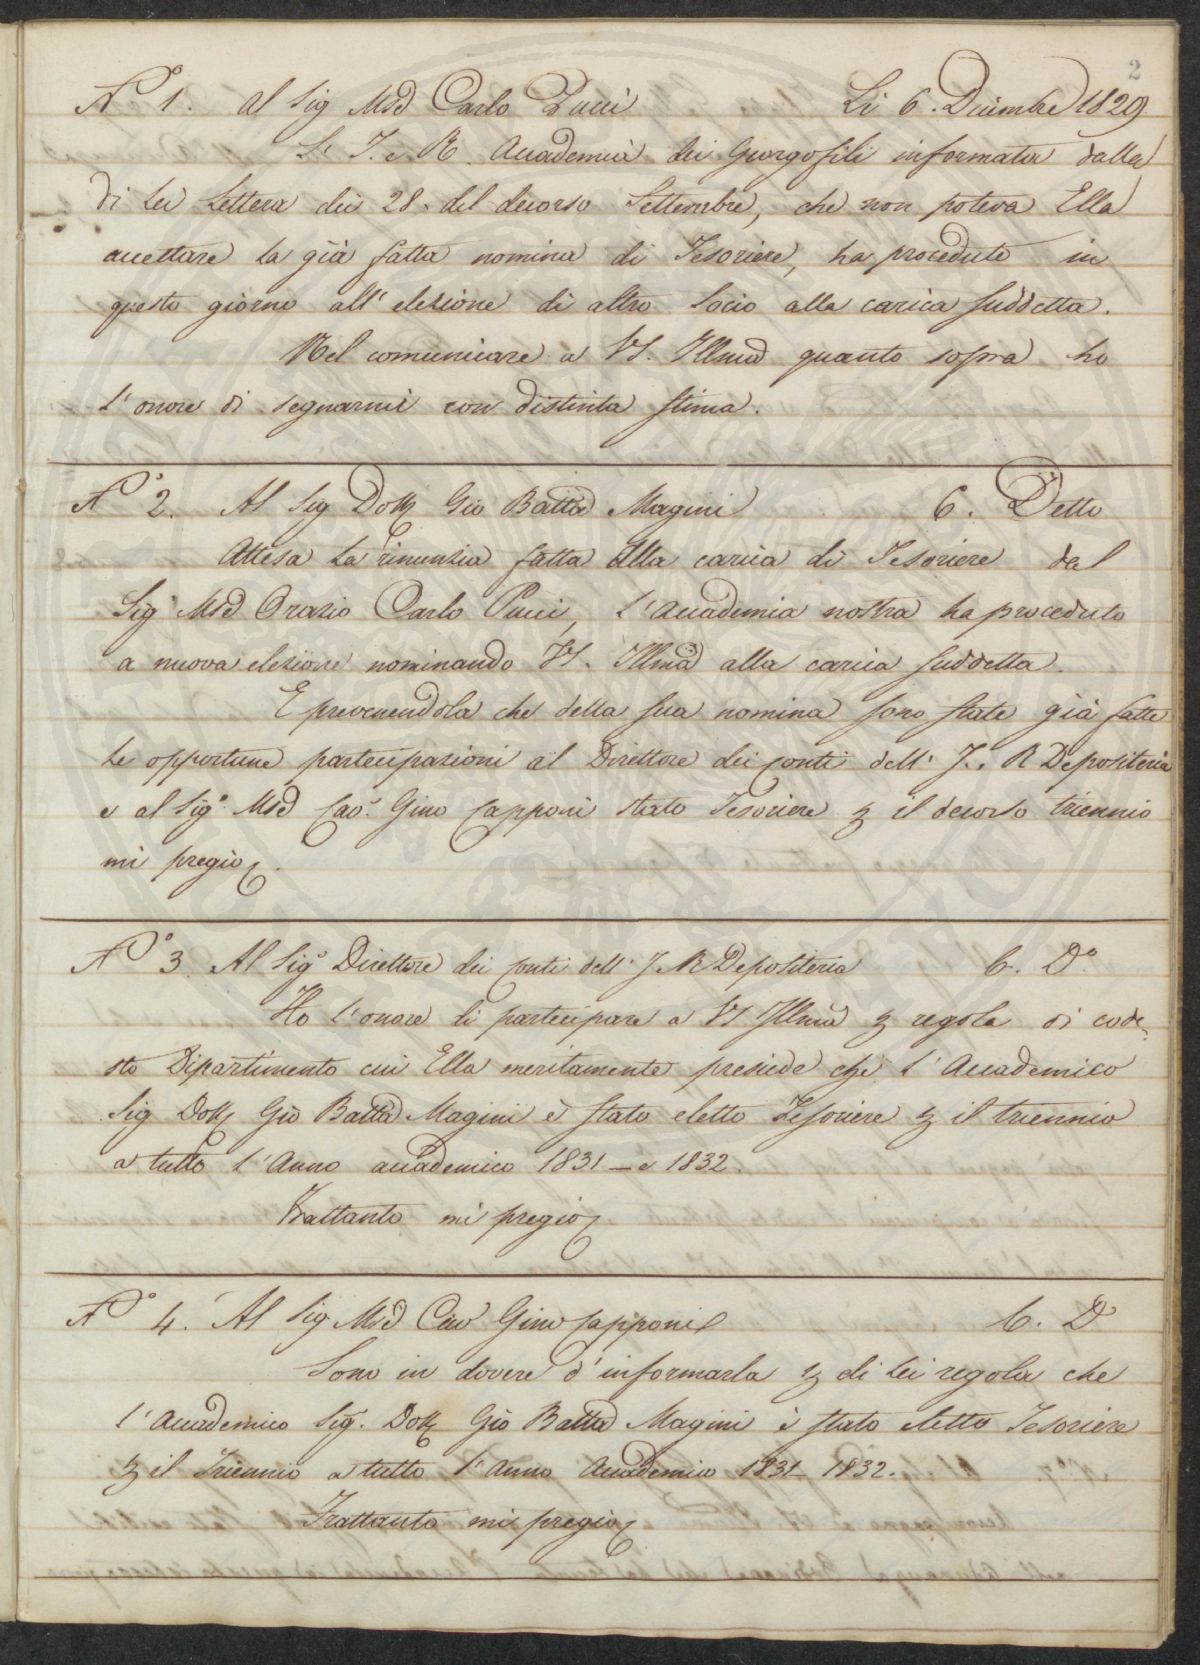 2
N.° 1. Al Sig Mse Carlo Pucci Li 6. Dicembre 1829
L' I. e R. Accademia dei Georgofili informata dalla
di Lei Lettera dei 28. del decorso Settembre, che non poteva Ella
accettare la già fatta nomina di Tesoriere, ha proceduto in
questo giorno all' elezione di altro Socio alla carica suddetta.
Nel comunicare a VS. Illma quanto sopra ho
l' onore di segnarmi con distinta stima.
N.° 2. Al Sig Dott Gio Batta Magini 6. Detto
Attesa la rinunzia fatta alla carica di Tesoriere dal
Sig Mse Orazio Carlo Pucci, l' Accademia nostra ha proceduto
a nuova elezione nominando VS. Illma alla carica suddetta.
E prevenendola che della sua nomina sono state già fatte
le opportune partecipazioni al Direttore dei Conti dell' I. R Depositeria
e al Sig.e Mse Cav.e Gino Capponi stato Tesoriere p il decorso triennio
mi pregio
N.° 3. Al Sig.e Direttore dei Conti dell' I. R Depositeria 6. D.o
Ho l' onore di partecipare a VS Illma p regola di code-
sto Dipartimento cui Ella meritamente presiede che l' Accademico
Sig Dott Gio Batta Magini è stato eletto Tesoriere p il triennio
a tutto l' Anno accademico 1831 - e 1832.
Frattanto mi pregio
N.° 4. Al Sig Mse Cav Gino Capponi 6. D
Sono in dovere d' informarla p di Lei regola che
l' Accademico Sig. Dott Gio Batta Magini è stato eletto Tesoriere
p il Triennio a tutto l' Anno Accademico 1831 1832.
Frattanto mi pregio